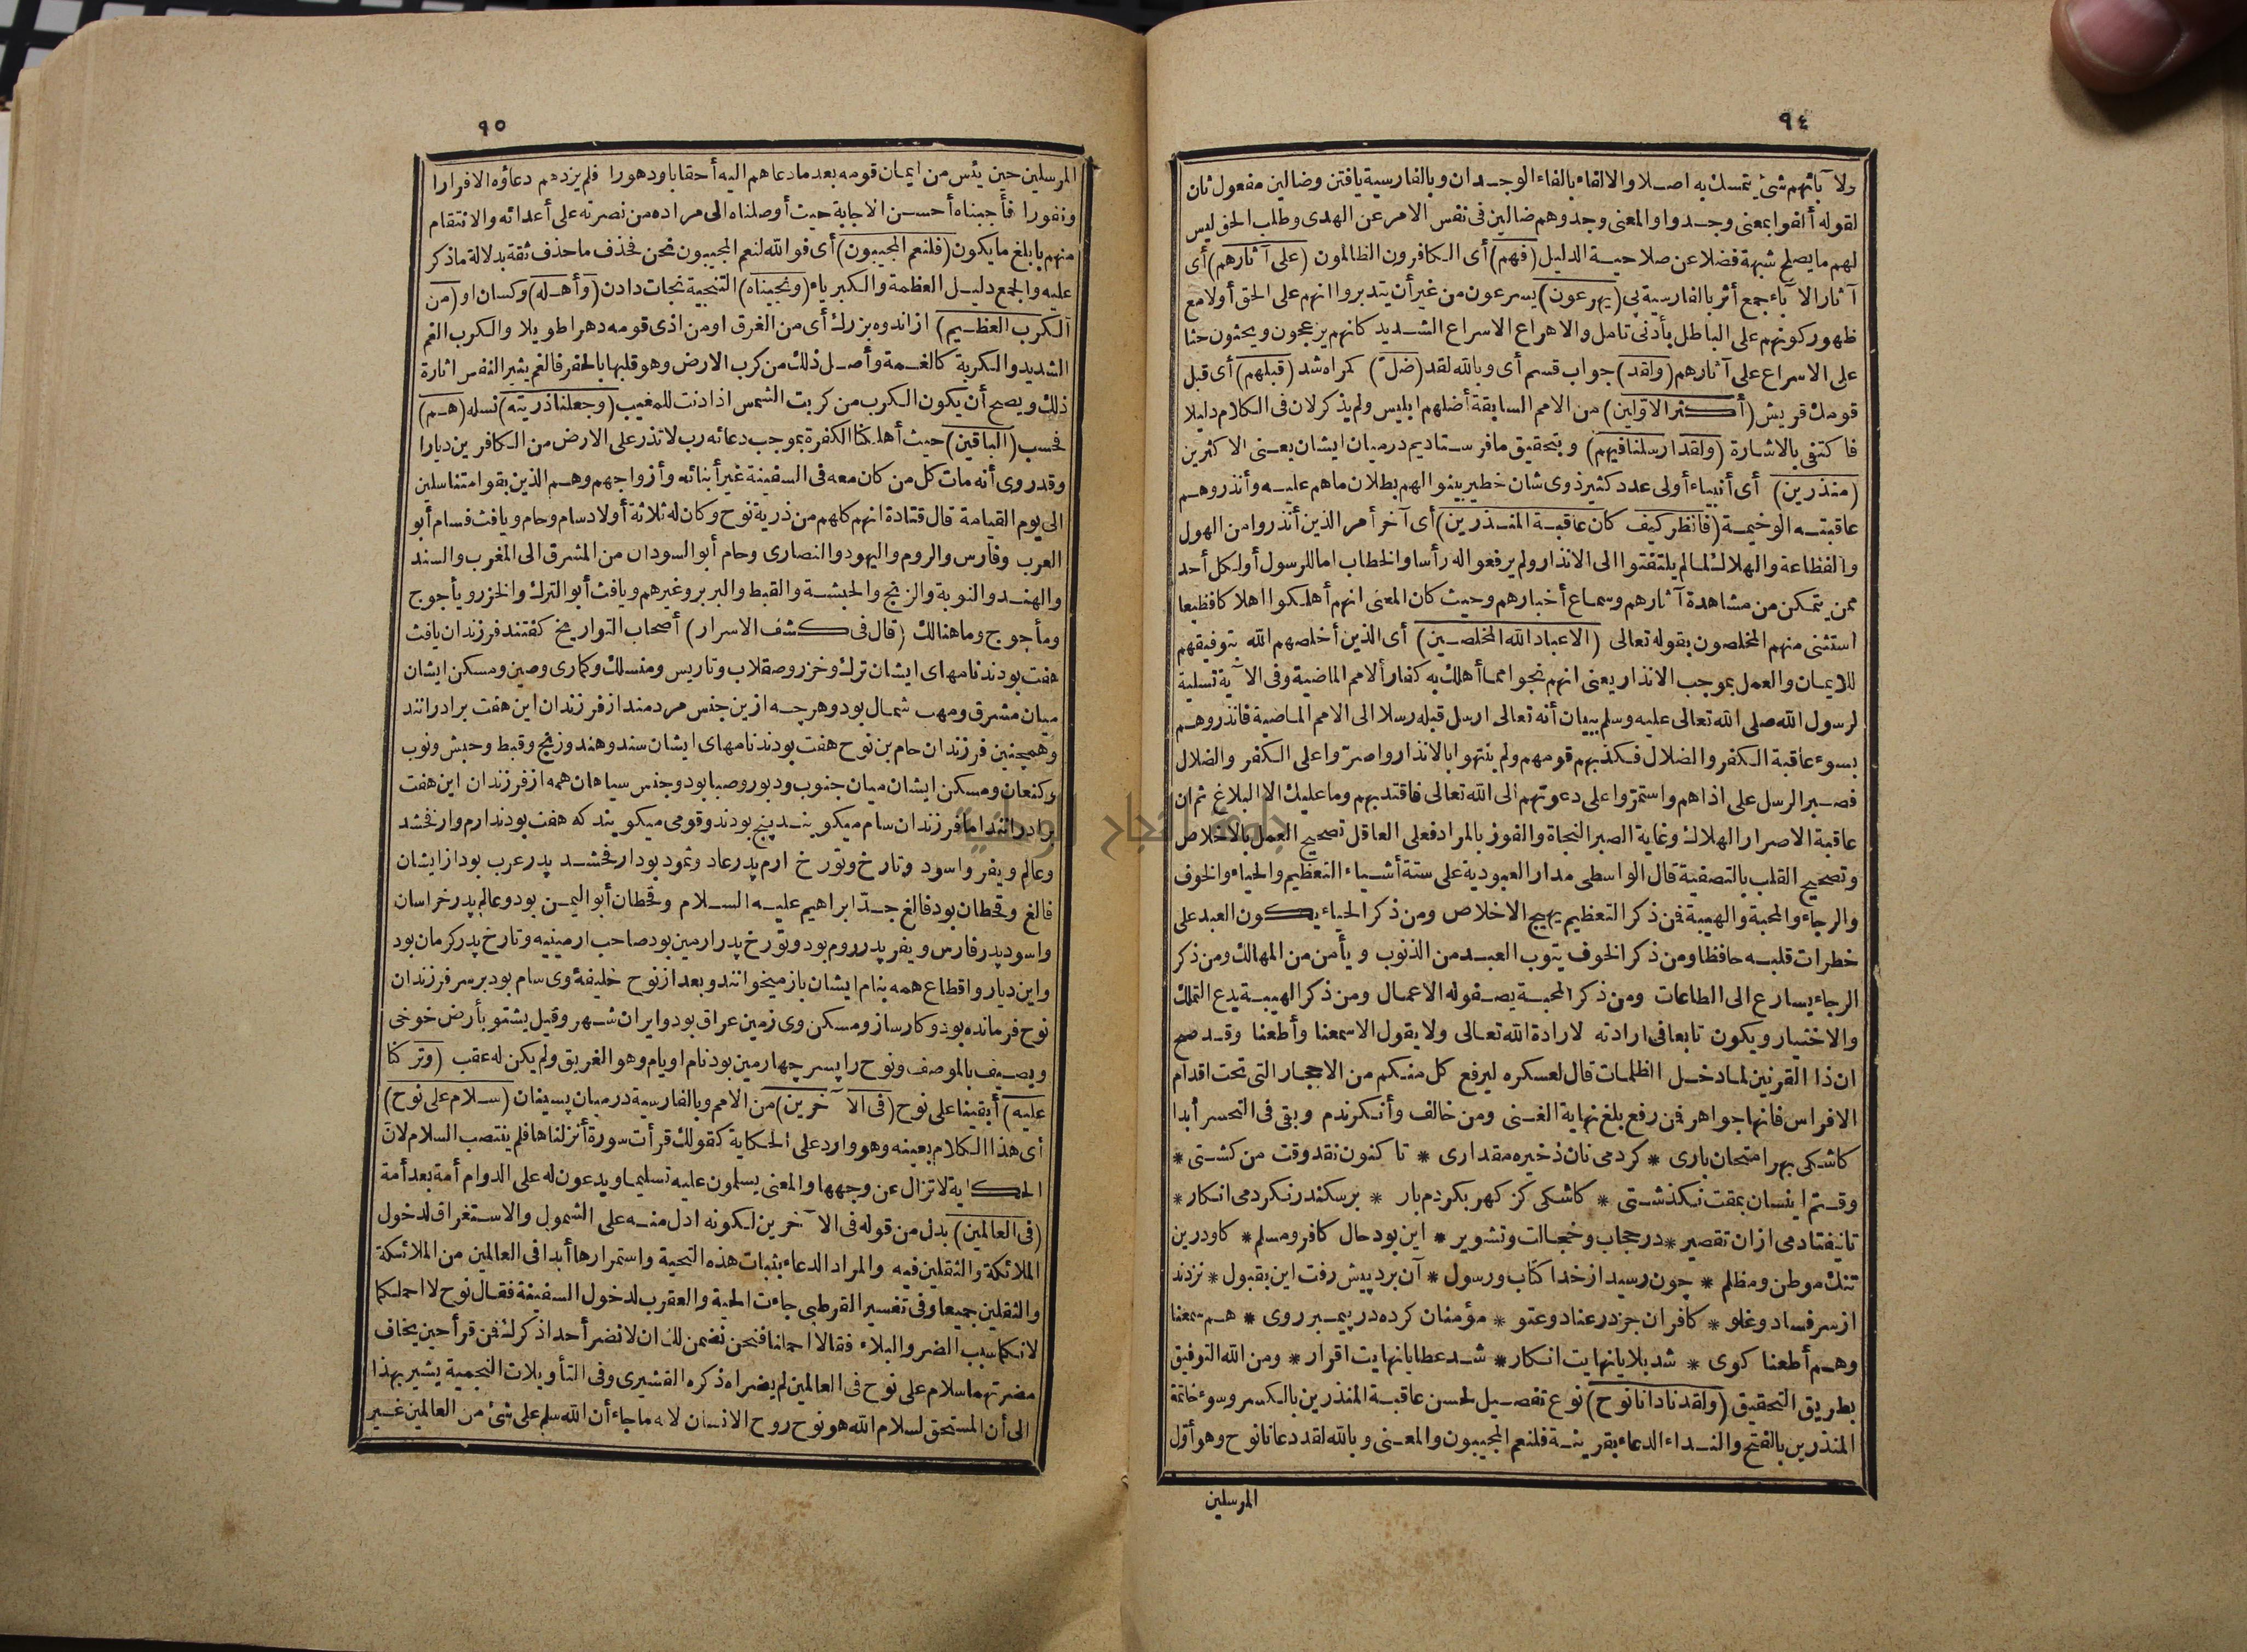 ٩٤
ولا بآبائهم شئ يتمسك به اصلا والالفاء بالفاء الوجدان وبالفارسية يافتن وضالين مفعول ثان
لقوله ألفوا بمعنى وجدوا والمعنى وجدوهم ضالين فى نفس الامر عن الهدى وطلب الحق ليس
لهم ما يصلح شبهة فضلا عن صلاحية الدليل (فهم) أى الكافرون الظالمون (على آثارهم) أى
آثار الآباء جمع أثر بالفارسية پى (يهرعون) يسرعون من غير أن يتدبروا انهم على الحق أولا مع
ظهور كونهم على الباطل بأدنى تامل والاهراع الاسراع الشديد كانهم يزعجون ويحثون حثا
على الاسراع على آثارهم (ولقد) جواب قسم أى وبالله لقد (ضل) كمراه شد (قبلهم) أى قبل
قومك قريش (أكثر الاولين) من الامم السابقة أضلهم ابليس ولم يذكر لان فى الكلام دليلا
فاكتفى بالاشارة (ولقد ارسلنا فيهم) وبتحقيق ما فرستاديم درميان ايشان يعنى الاكثرين
(منذرين) أى أنبياء أولى عدد كثير ذوى شان خطير بينوا لهم بطلان ما هم عليه وأنذروهم
عاقبته الوخيمة (فانظر كيف كان عاقبة المنذرين) أى آخر أمر الذين أنذروا من الهول
والفظاعة والهلاك لما لم يلتفتوا الى الانذار ولم يرفعوا له رأسا والخطاب اما للرسول أولكل أحد
ممن يتمكن من مشاهدة آثارهم وسماع أخبارهم وحيث كان المعنى انهم أهلكوا اهلاكا فظيعا
استثنى منهم المخلصون بقوله تعالى (الاعباد الله المخلصين) أى الذين أخلصهم الله بتوفيقهم
للايمان والعمل بموجب الانذار يعنى انهم نجوا مما أهلك به كفار ألامم الماضية وفى الآية تسلية
لرسول الله صلى الله تعالى عليه وسلم ببيان أنه تعالى ارسل قبله رسلا الى الامم الماضية فانذروهم
بسوء عاقبة الكفر والضلال فكذبهم قومهم ولم ينتهوا بالانذار واصروا على الكفر والضلال
فصبر الرسل على اذاهم واستمروا على دعوتهم الى الله تعالى فاقتد بهم وما عليك الا البلاغ ثم ان
عاقبة الاصرار الهلاك وغاية الصبر النجاة والفوز بالمراد فعلى العاقل تصحيح العمل بالاخلاص
وتصحيح القلب بالتصفية قال الواسطى مدار العبودية على ستة أشياء التعظيم والحياء والخوف
والرجاء والمحبة والهيبة فمن ذكر التعظيم يهيج الاخلاص ومن ذكر الحياء يكون العبد على
خطرات قلبه حافظا ومن ذكر الخوف يتوب العبد من الذنوب ويأمن من المهالك ومن ذكر
الرجاء يسارع الى الطاعات ومن ذكر المحبة يصفوله الاعمال ومن ذكر الهيبة يدع التملك
والاختيار ويكون تابعا فى ارادته لارادة الله تعالى ولا يقول الا سمعنا وأطعنا وقد صح
ان ذا القرنين لما دخل الظلمات قال لعسكره ليرفع كل منكم من الاحجار التى تحت اقدام
الافراس فانها جواهر فمن رفع بلغ نهاية الغنى ومن خالف وأنكر ندم وبقى فى التحسر أبدا
كاشكى بهر امتحان بارى * كردمى نان ذخيره مقدارى * تا كنون نقد وقت من كشتى *
وقتم اينسان بمقت نكذشتى * كاشكى كز كهر بكردم بار * برسكندر نكردمى انكار *
تانيفتادمى ازان تقصير * در حجاب وخجالت وتشوير * اين بود حال كافر ومسلم * كاودرين
تنك موطن ومظلم * چون رسيد از خدا كتاب ورسول * آن برد پيش رفت اين بقبول * نزدند
از سر فساد وغلو * كافران جز در عناد وعتو * مؤمنان كرده در پيمبر روى * هم سمعنا
وهم أطعنا كوى * شد بلا يا نهايت انكار * شد عطايا نهايت اقرار * ومن الله التوفيق
بطريق التحقيق (ولقد نادانا نوح) نوع تفصيل لحسن عاقبة المنذرين بالكسر وسوء خاتمة
المنذرين بالفتح والنداء الدعاء بقرينة فلنعم المجيبون والمعنى وبالله لقد دعانا نوح وهو أول
المرسلين
٩٥
المرسلين حين يئس من ايمان قومه بعد ما دعاهم اليه أحقابا ودهورا فلم يزدهم دعاؤه الا فرارا
ونفورا فأجبناه أحسن الاجابة حيث أوصلناه الى مراده من نصرته على أعدائه والانتقام
منهم بابلغ ما يكون (فلنعم المجيبون) أى فوالله لنعم المجيبون نحن فحذف ما حذف ثقة بدلالة ما ذكر
عليه والجمع دليل العظمة والكبرياء (ونجيناه) التنجية نجات دادن (وأهله) وكسان او (من
الكرب العظيم) از اندوه بزرك أى من الغرق او من اذى قومه دهرا طويلا والكرب الغم
الشديد والكربة كالغمة وأصل ذلك من كرب الارض وهو قلبها بالحفر فالغم يثير النفس اثارة
ذلك ويصح أن يكون الكرب من كربت الشمس اذا دنت للمغيب (وجعلنا ذريته) نسله (هم)
فحسب (الباقين) حيث أهلكنا الكفرة بموجب دعائه رب لا تذر على الارض من الكافرين ديارا
وقد روى أنه مات كل من كان معه فى السفينة غير أبنائه وأزواجهم وهم الذين بقوا متناسلين
الى يوم القيامة قال قتادة انهم كلهم من ذرية نوح وكان له ثلاثة أولاد سام وحام ويافث فسام أبو
العرب وفارس والروم واليهود والنصارى وحام أبو السودان من المشرق الى المغرب والسند
والهند والنوبة والزنج والحبشة والقبط والبربر وغيرهم ويافث أبو الترك والخزر ويأجوج
ومأجوج وما هنالك (قال فى كشف الاسرار) أصحاب التواريخ كفتند فرزندان يافث
هفت بودند نامهاى ايشان ترك وخزر وصقلاب وتاريس ومنسلك وكمارى وصين ومسكن ايشان
ميان مشرق ومهب شمال بود وهرچه ازين جنس مردمند از فرزندان اين هفت برادرانند
وهمچنين فرزندان حام بن نوح هفت بودند نامهاى ايشان سند وهند وزنج وقبط وحبش ونوب
وكنعان ومسكن ايشان ميان جنوب ودبور وصبا بود وجنس سياهان همه از فرزندان اين هفت
برادرانند اما فرزندان سام ميكويند پنج بودند وقومى ميكويند كه هفت بودند ارم وارفخشد
وعالم ويفر واسود وتارخ وتورخ ارم پدر عاد وثمود بود ارفخشد پدر عرب بود از ايشان
فالغ وقحطان بود فالغ جد ابراهيم عليه السلام وقحطان أبو اليمن بود وعالم پدر خراسان
واسود پدر فارس ويفر پدر روم بود وتورخ پدر ارمين بود صاحب ارمينيه وتارخ پدر كرمان بود
واين ديار واقطاع همه بنام ايشان باز ميخوانند وبعد از نوح خليفهٔ وى سام بود بر سر فرزندان
نوح فرمانده بود وكارساز ومسكن وى زمين عراق بود وايران شهر وقيل يشتو بأرض خوخى
ويصيف بالموصف ونوح را پسر چهارمين بود نام او يام وهو الغريق ولم يكن له عقب (وتركنا
عليه) أبقينا على نوح (فى الآخرين) من الامم وبالفارسية درميان پسينان (سلام على نوح)
أى هذا الكلام بعينه وهو وارد على الحكاية كقولك قرأت سورة أنزلناها فلم ينتصب السلام لان
الحكاية لا تزال عن وجهها والمعنى يسلمون عليه تسليما ويدعون له على الدوام أمة بعد أمة
(فى العالمين) بدل من قوله فى الآخرين لكونه ادل منه على الشمول والاستغراق لدخول
الملائكة والثقلين فيه والمراد الدعاء بثبات هذه التحية واستمرارها أبدا فى العالمين من الملائكة
والثقلين جميعا وفى تفسير القرطبى جاءت الحية والعقرب لدخول السفينة فقال نوح لا احملكما
لانكما سبب الضر والبلاء فقالا احملنا فنحن نضمن لك ان لا نضر أحدا ذكرك فمن قرأ حين يخاف
مضرتهما سلام على نوح فى العالمين لم يضراه ذكره القشيرى وفى التأويلات النجمية يشير بهذا
الى أن المستحق لسلام الله هو نوح روح الانسان لانه ما جاء أن الله سلم على شئ من العالمين غير
جامعة النجاح الوطنية